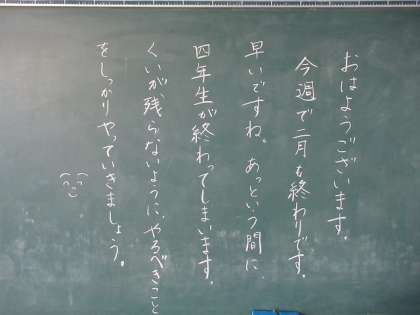 おはようございます。
今週で二月も終わりです。
早いですね。あっという間に、
四年生が終わってしまいます。
くいが残らないように、やるべきこと
をしっかりやっていきましょう。